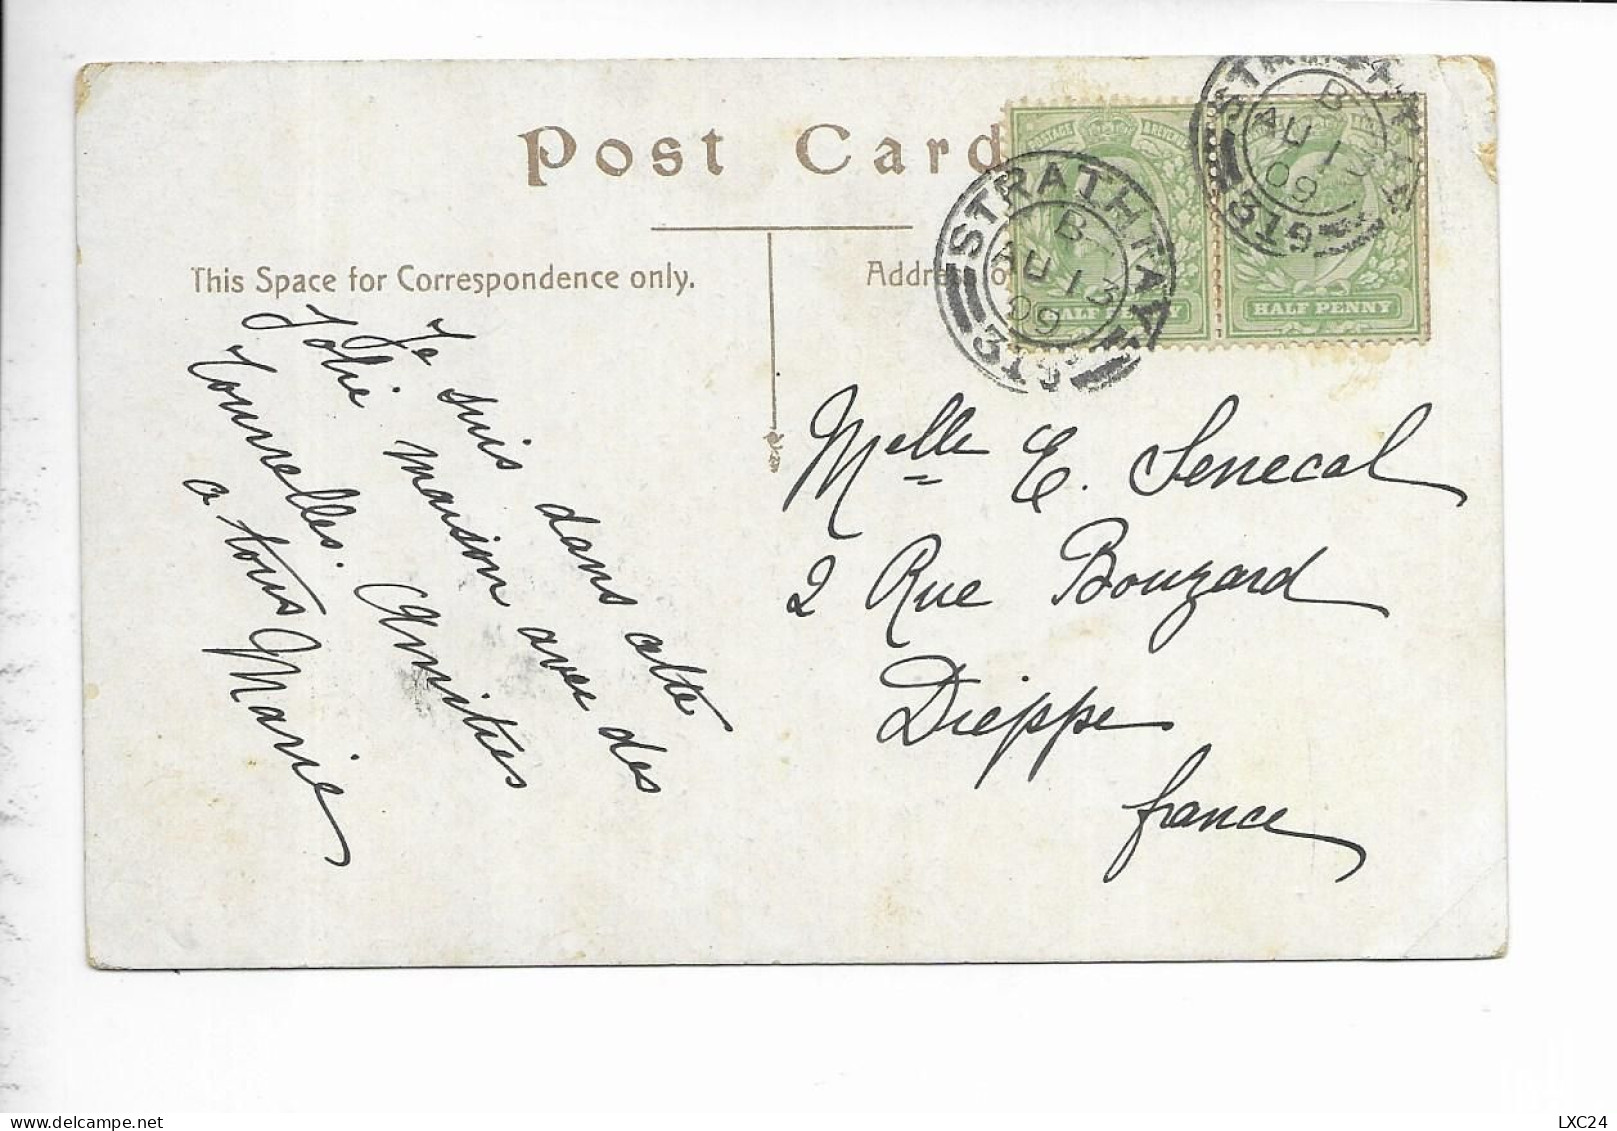 Post Card
This Space for Correspondence only.
Addre
STRATHTAY
B
AU 13
09
319
STRATHTAY
B
AU 13
09
319
HALF PENNY
HALF PENNY
Je suis dans cette
Jolie maison avec des
Tourelles. Amitiés
a tous Marie
Melle E. Senecal
2 Rue Bouzard
Dieppe
france
LXC24